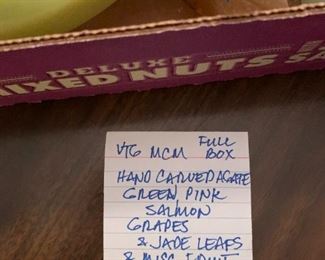 DELUXE
MIXED NUTS
VTG MCM FULL BOX
HAND CARVED AGATE
GREEN, PINK
SALMON
GRAPES
& JADE LEAFS
& MISC FRUIT